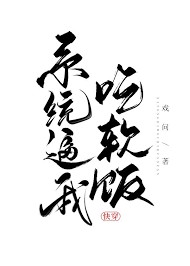 系统逼我
吃软饭
快穿
戏问/著